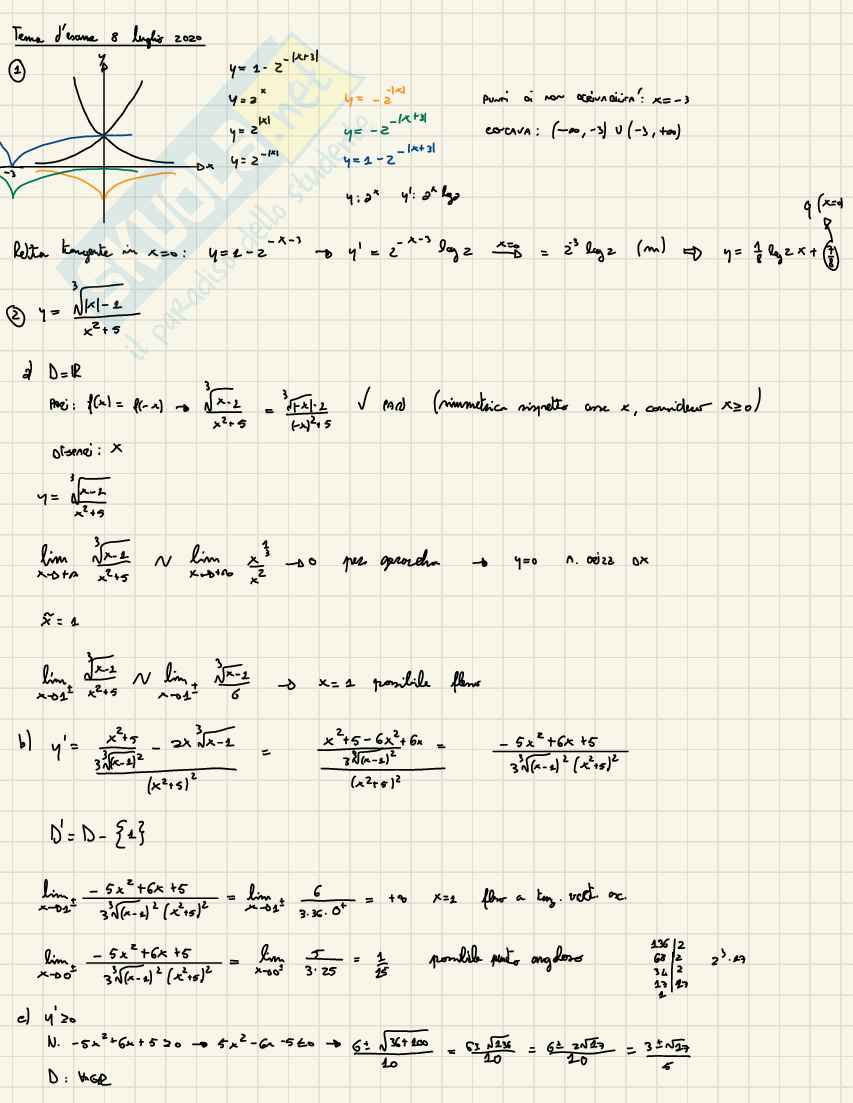 Tema d'esame 8 luglio 2020
① y x -3
y = 1 - 2^{-|x+3|}
y = 2^x
y = 2^{|x|}
y = 2^{-|x|}
y = -2^{-|x|}
y = -2^{-|x+3|}
y = 1 - 2^{-|x+3|}
y: 2^x y': 2^x log2
punti di non derivabilità: x = -3
concava: (-∞, -3) ∪ (-3, +∞)
Retta tangente in x=0: y = 1 - 2^{-x-3} → y' = 2^{-x-3} log 2 →(x=0) = 2^{-3} log 2 (m) ⇒ y = 1/8 log 2 x + 7/8 q (x=0)
② y = ∛(|x|-1) / (x²+5)
a) D = ℝ
Pari: f(x) = f(-x) → ∛(x-1) / (x²+5) = ∛(|-x|-1) / ((-x)²+5) ✓ PARI (simmetrica rispetto asse x, considero x ≥ 0)
Dispari: X
y = ∛(x-1) / (x²+5)
lim x→+∞ ∛(x-1) / (x²+5) ~ lim x→+∞ x^{1/3} / x² → 0 per gerarchia → y=0 A. orizz DX
x̃ = 1
lim x→1± ∛(x-1) / (x²+5) ~ lim x→1± ∛(x-1) / 6 → x = 1 possibile flesso
b) y' = ((x²+5) / (3∛(x-1)²) - 2x ∛(x-1)) / (x²+5)² = ((x²+5-6x²+6x) / (3∛(x-1)²)) / (x²+5)² = (-5x²+6x+5) / (3∛(x-1)² (x²+5)²)
D' = D - {1}
lim x→1± (-5x²+6x+5) / (3∛(x-1)² (x²+5)²) = lim x→1± 6 / (3·36·0⁺) = +∞ x=1 flesso a tang. vert asc.
lim x→0± (-5x²+6x+5) / (3∛(x-1)² (x²+5)²) = lim x→0± 5 / (3·25) = 1/15 possibile punto angoloso
136 | 2
68 | 2
34 | 2
17 | 17
1
2³·17
c) y' ≥ 0
N. -5x²+6x+5 ≥ 0 → 5x²-6x-5 ≤ 0 → (6 ± √(36+100)) / 10 = (6 ± √136) / 10 = (6 ± 2√17) / 10 = (3 ± √17) / 5
D: ∀x∈ℝ
SKUOLA.net
il paradiso dello studente